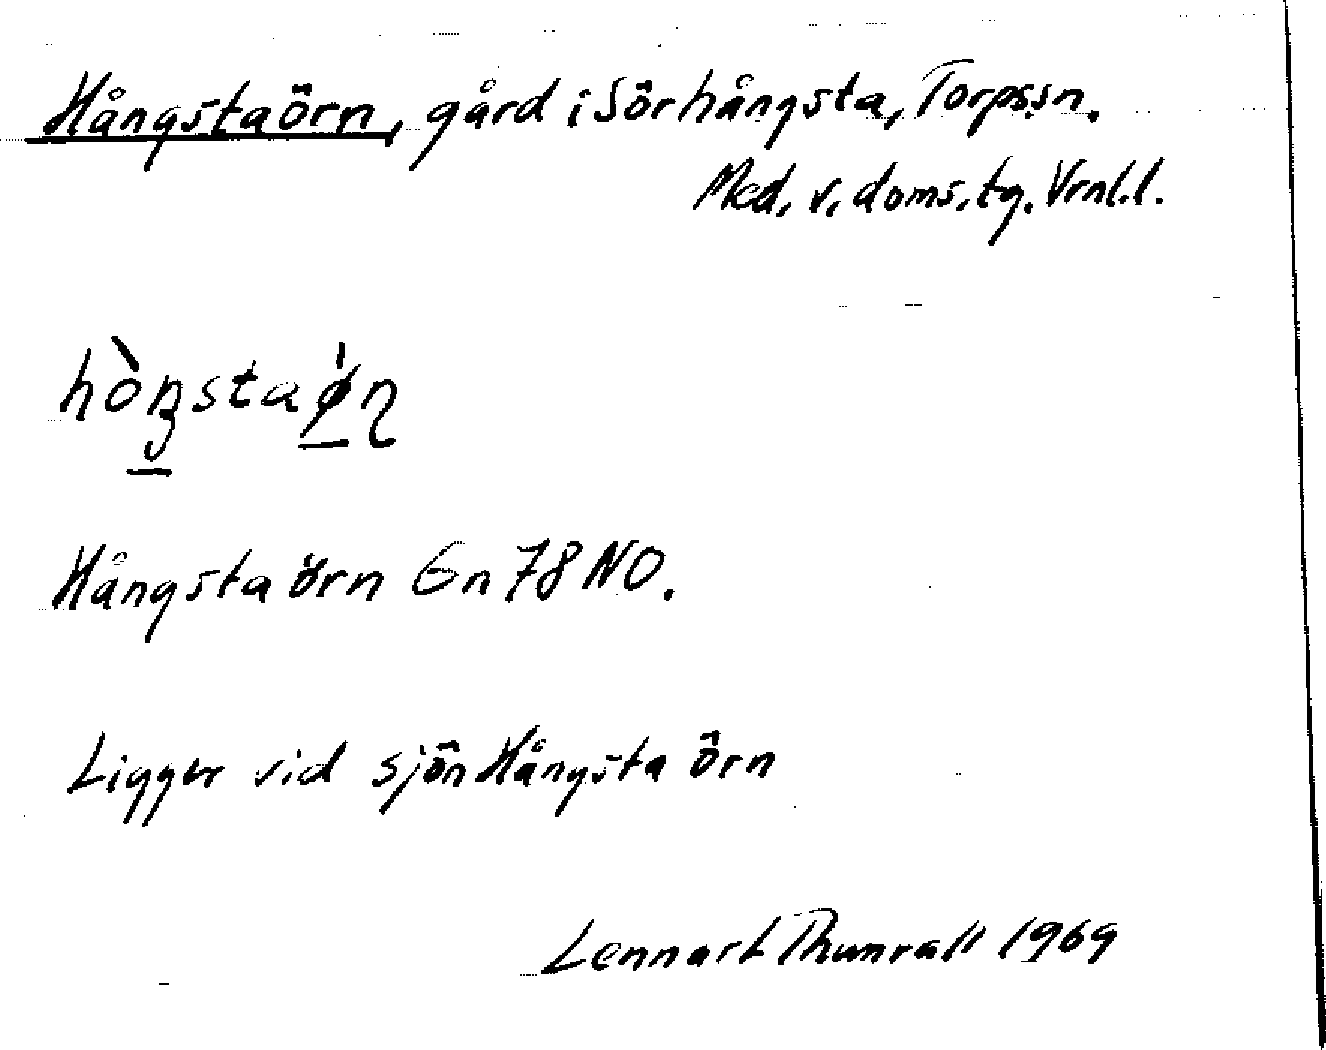 Hångstaörn, gård i Sörhångsta, Torps sn.
Med. v. doms. tg. Vrnl. l.
hòŋstaǿn
Hångsta örn Gn 78 NO.
Ligger vid sjön Hångsta örn
Lennart Thunvall 1969